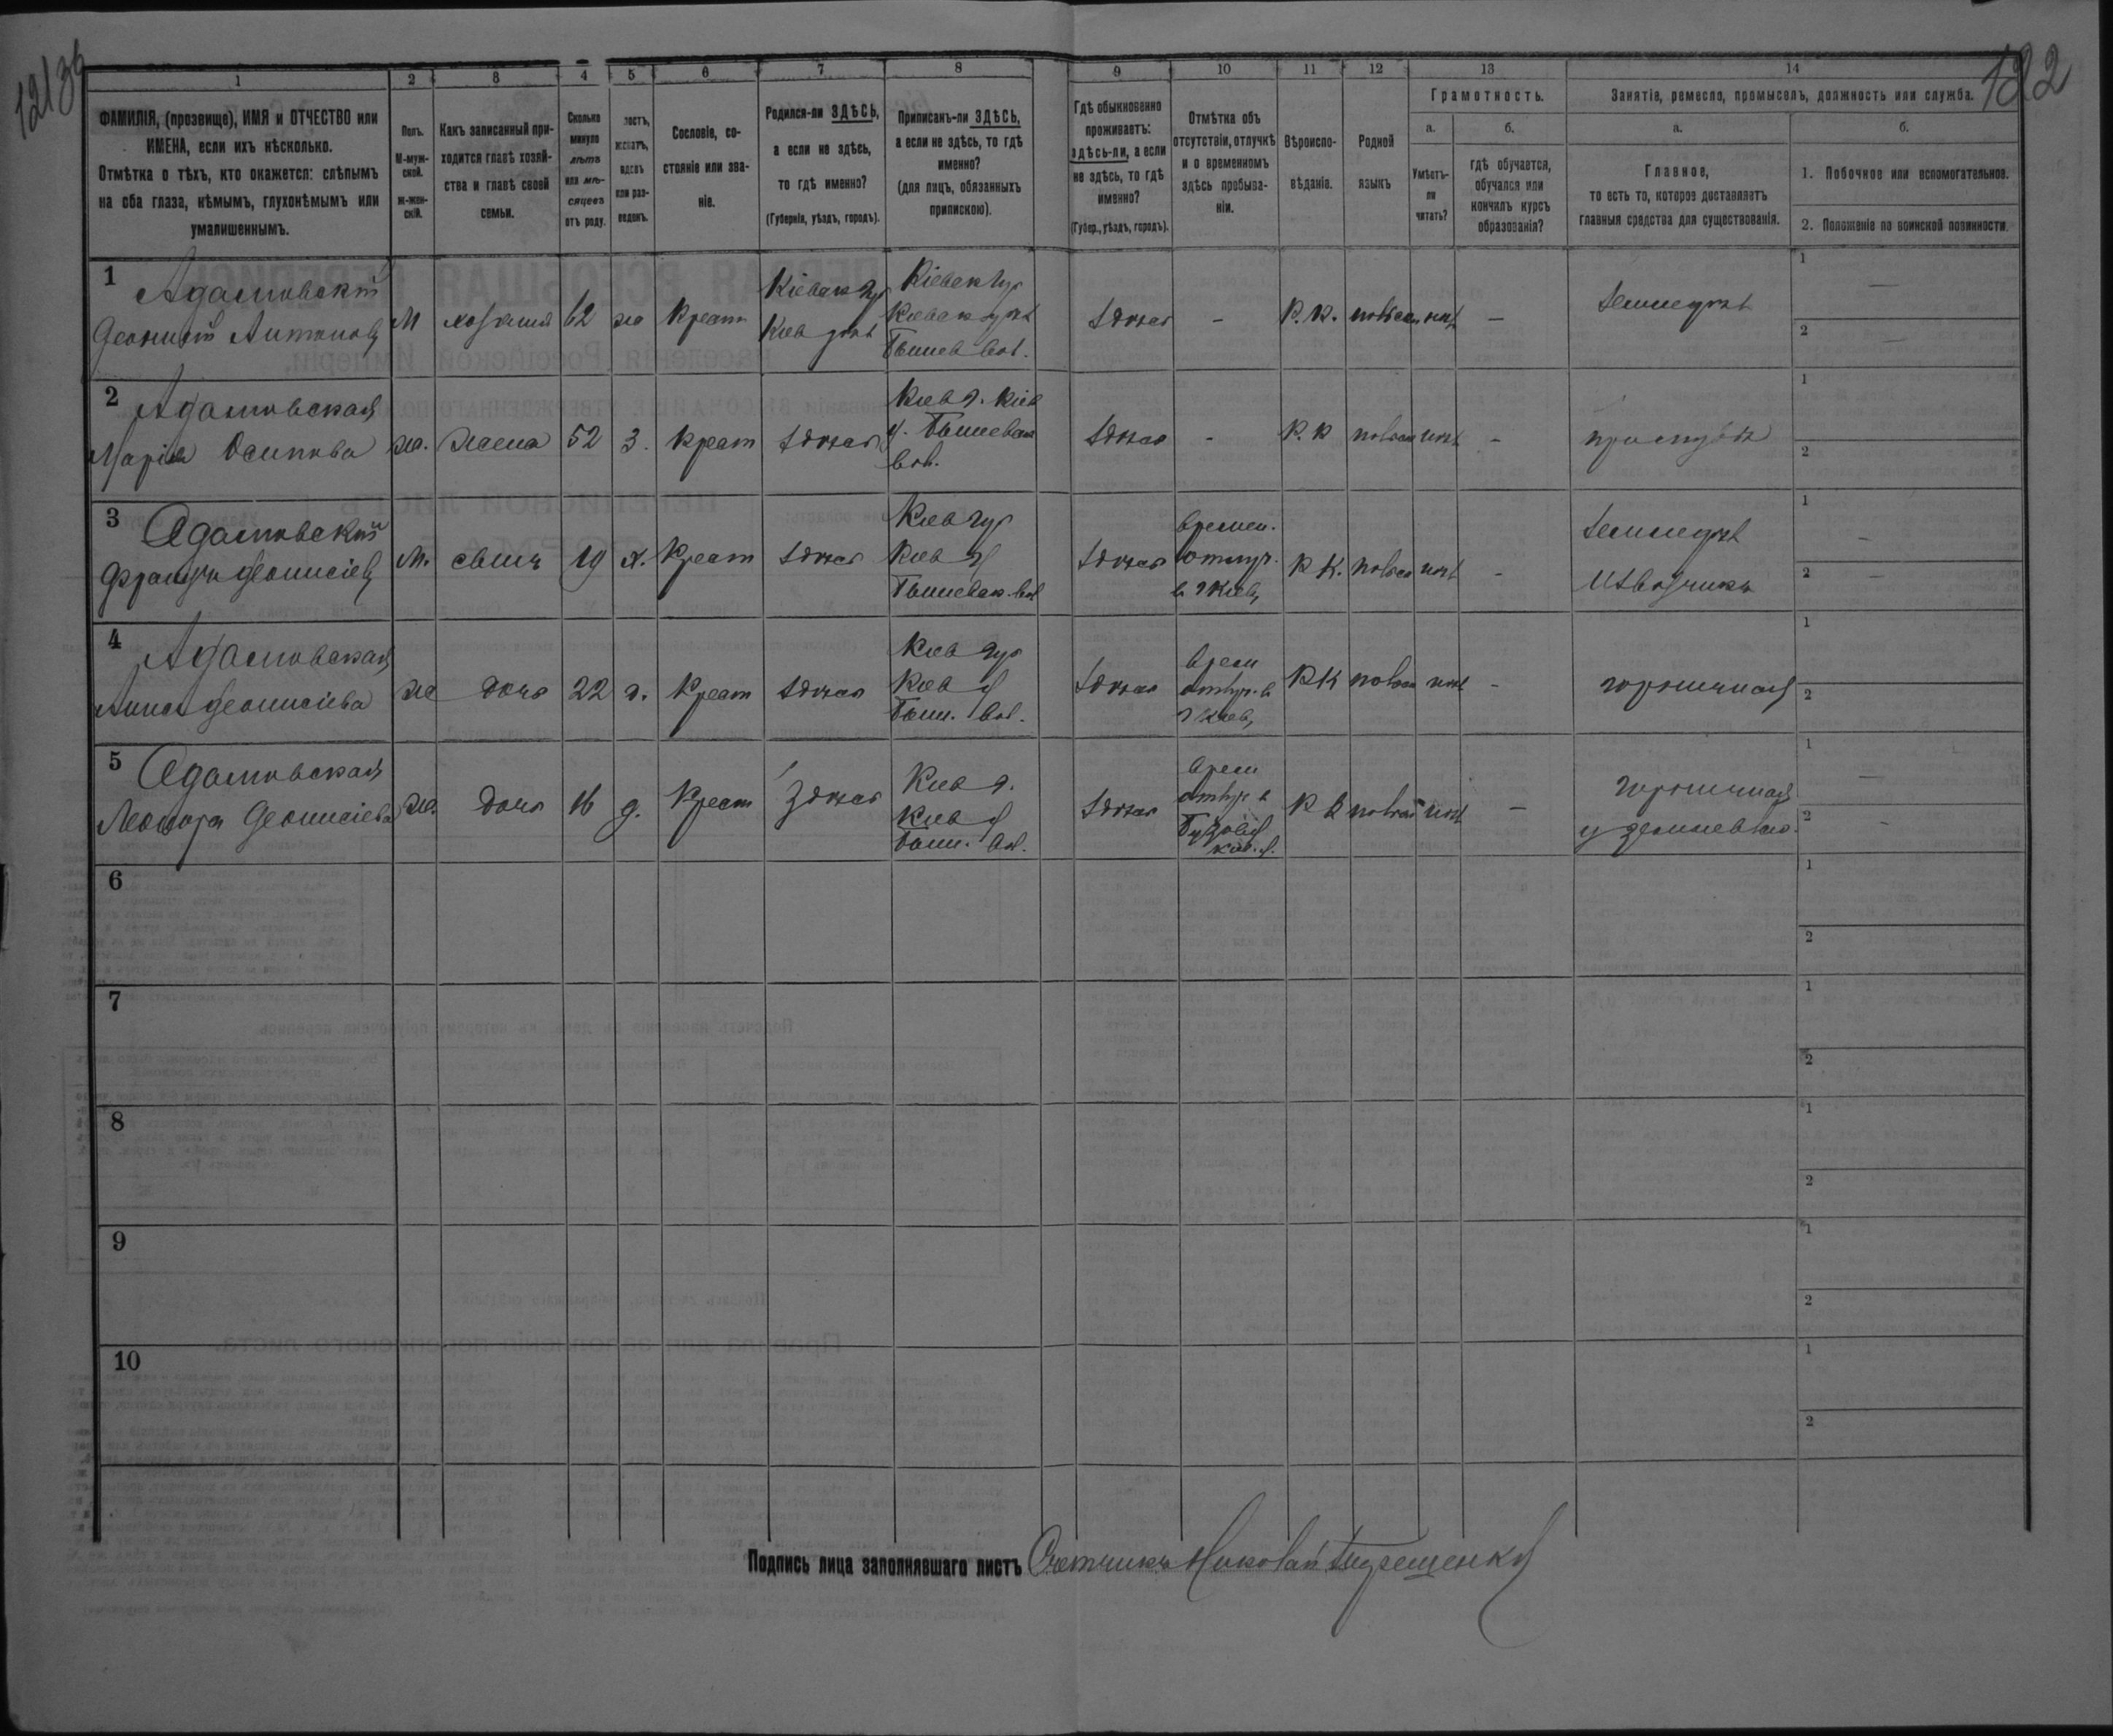 122
1
2
3
4
5
6
7
8
9
10
11
12
13
14
ФАМИЛІЯ, (прозвище), ИМЯ и ОТЧЕСТВО или
ИМЕНА, если ихъ нѣсколько.
Отмѣтка о тѣхъ, кто окажется: слѣпымъ
на оба глаза, нѣмымъ, глухонѣмымъ или
умалишеннымъ.
Полъ.
М-муж-
ской.
ж-жен-
скій.
Какъ записанный при-
ходится главѣ хозяй-
ства и главѣ своей
семьи.
Сколько
минуло
лѣтъ
или мѣ-
сяцевъ
отъ роду.
женатъ,
вдовъ
или раз-
веденъ.
Сословіе, со-
стояніе или зва-
ніе.
Родился-ли ЗДѢСЬ,
а если не здѣсь,
то гдѣ именно?
(Губернія, уѣздъ, городъ).
Приписанъ-ли ЗДѢСЬ,
а если не здѣсь, то гдѣ
именно?
(для лицъ, обязанныхъ
припискою).
Гдѣ обыкновенно
проживаетъ:
здѣсь-ли, а если
не здѣсь, то гдѣ
именно?
(Губер., уѣздъ, городъ).
Отмѣтка объ
отсутствіи, отлучкѣ
и о временномъ
здѣсь пребыва-
ніи.
Вѣроиспо-
вѣданіе.
Родной
языкъ
Грамотность.
а.
Умѣетъ-
ли
читать?
б.
гдѣ обучается,
обучался или
кончилъ курсъ
образованія?
Занятіе, ремесло, промыселъ, должность или служба.
а.
Главное,
то есть то, которое доставляетъ
главныя средства для существованія.
б.
1. Побочное или вспомогательное.
2. Положеніе по воинской повинности.
1
Адамовскій
Деонисій Антоновъ
М
хозяинъ
62
ж
Крест
Кіевск гу
Кіев
Кіевск гу
Кіевск
Бышев вол.
здѣсь
-
Р. К.
польск
нѣт
-
1
2
2
Адамовская
Марія Осипова
ж.
жена
52
з.
крест
здѣсь
Кіев г. Кіев
у. Бышевск
вол.
здѣсь
-
Р. К
польск
нѣт
-
1
2
3
Адамовскій
Францъ Деонисіевъ
М.
сынъ
19
х.
Крест
здѣсь
Кіев гу
Кіев у
Бышевск. вол
здѣсь
времен.
отлуч.
в г Кіевъ
Р К.
польск
нѣт
-
Извозчикъ
1
2
4
Адамовская
Анна Деонисіева
ж
дочь
22
д.
Крест
здѣсь
Кіев гу
Кіев у
Быш. вол.
здѣсь
врем
отлуч. в
г Кіевъ
Р К
польск
нѣт
-
горничная
1
2
5
Адамовская
Леонора Деонисіева
ж.
дочь
16
д.
Крест
здѣсь
Кіев г.
Кіев у
Быш. вол.
здѣсь
врем
отлуч в
Кіев. у.
Р К
польск
нѣт
-
горничная
1
2
6
1
2
7
1
2
8
1
2
9
1
2
10
1
2
Подпись лица заполнявшаго листъ Счетчикъ Николай